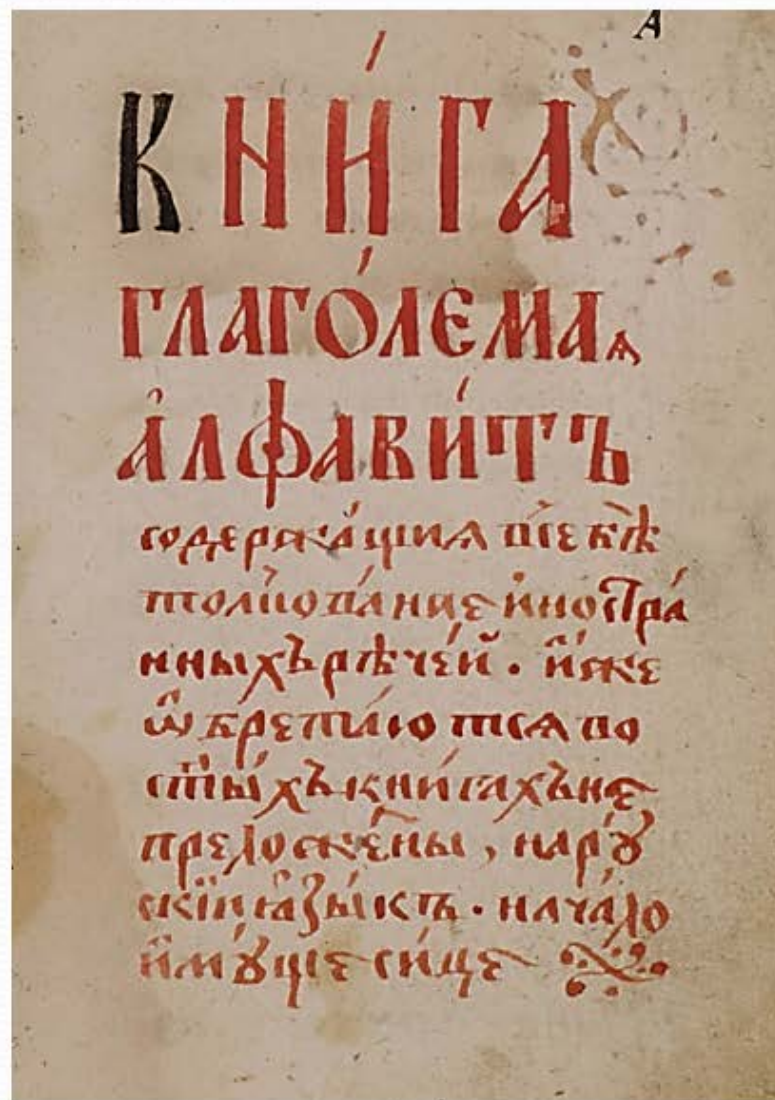 А
КНИ́ГА
ГЛАГО́ЛЕМАѧ
А҆ЛФАВИ́ТЪ
содержа́щиѧ всебѣ
толкова́нїе и҆ностра́
нныхъ рѣче́й. и҆̀же
ѡ҆брета́ютсѧ во
ст҃ы́хъ кни́гахъ не
преложе́ны, нарꙋ́
скїи ꙗ҆зы́къ. нача́ло
и҆мꙋ́щее си́це